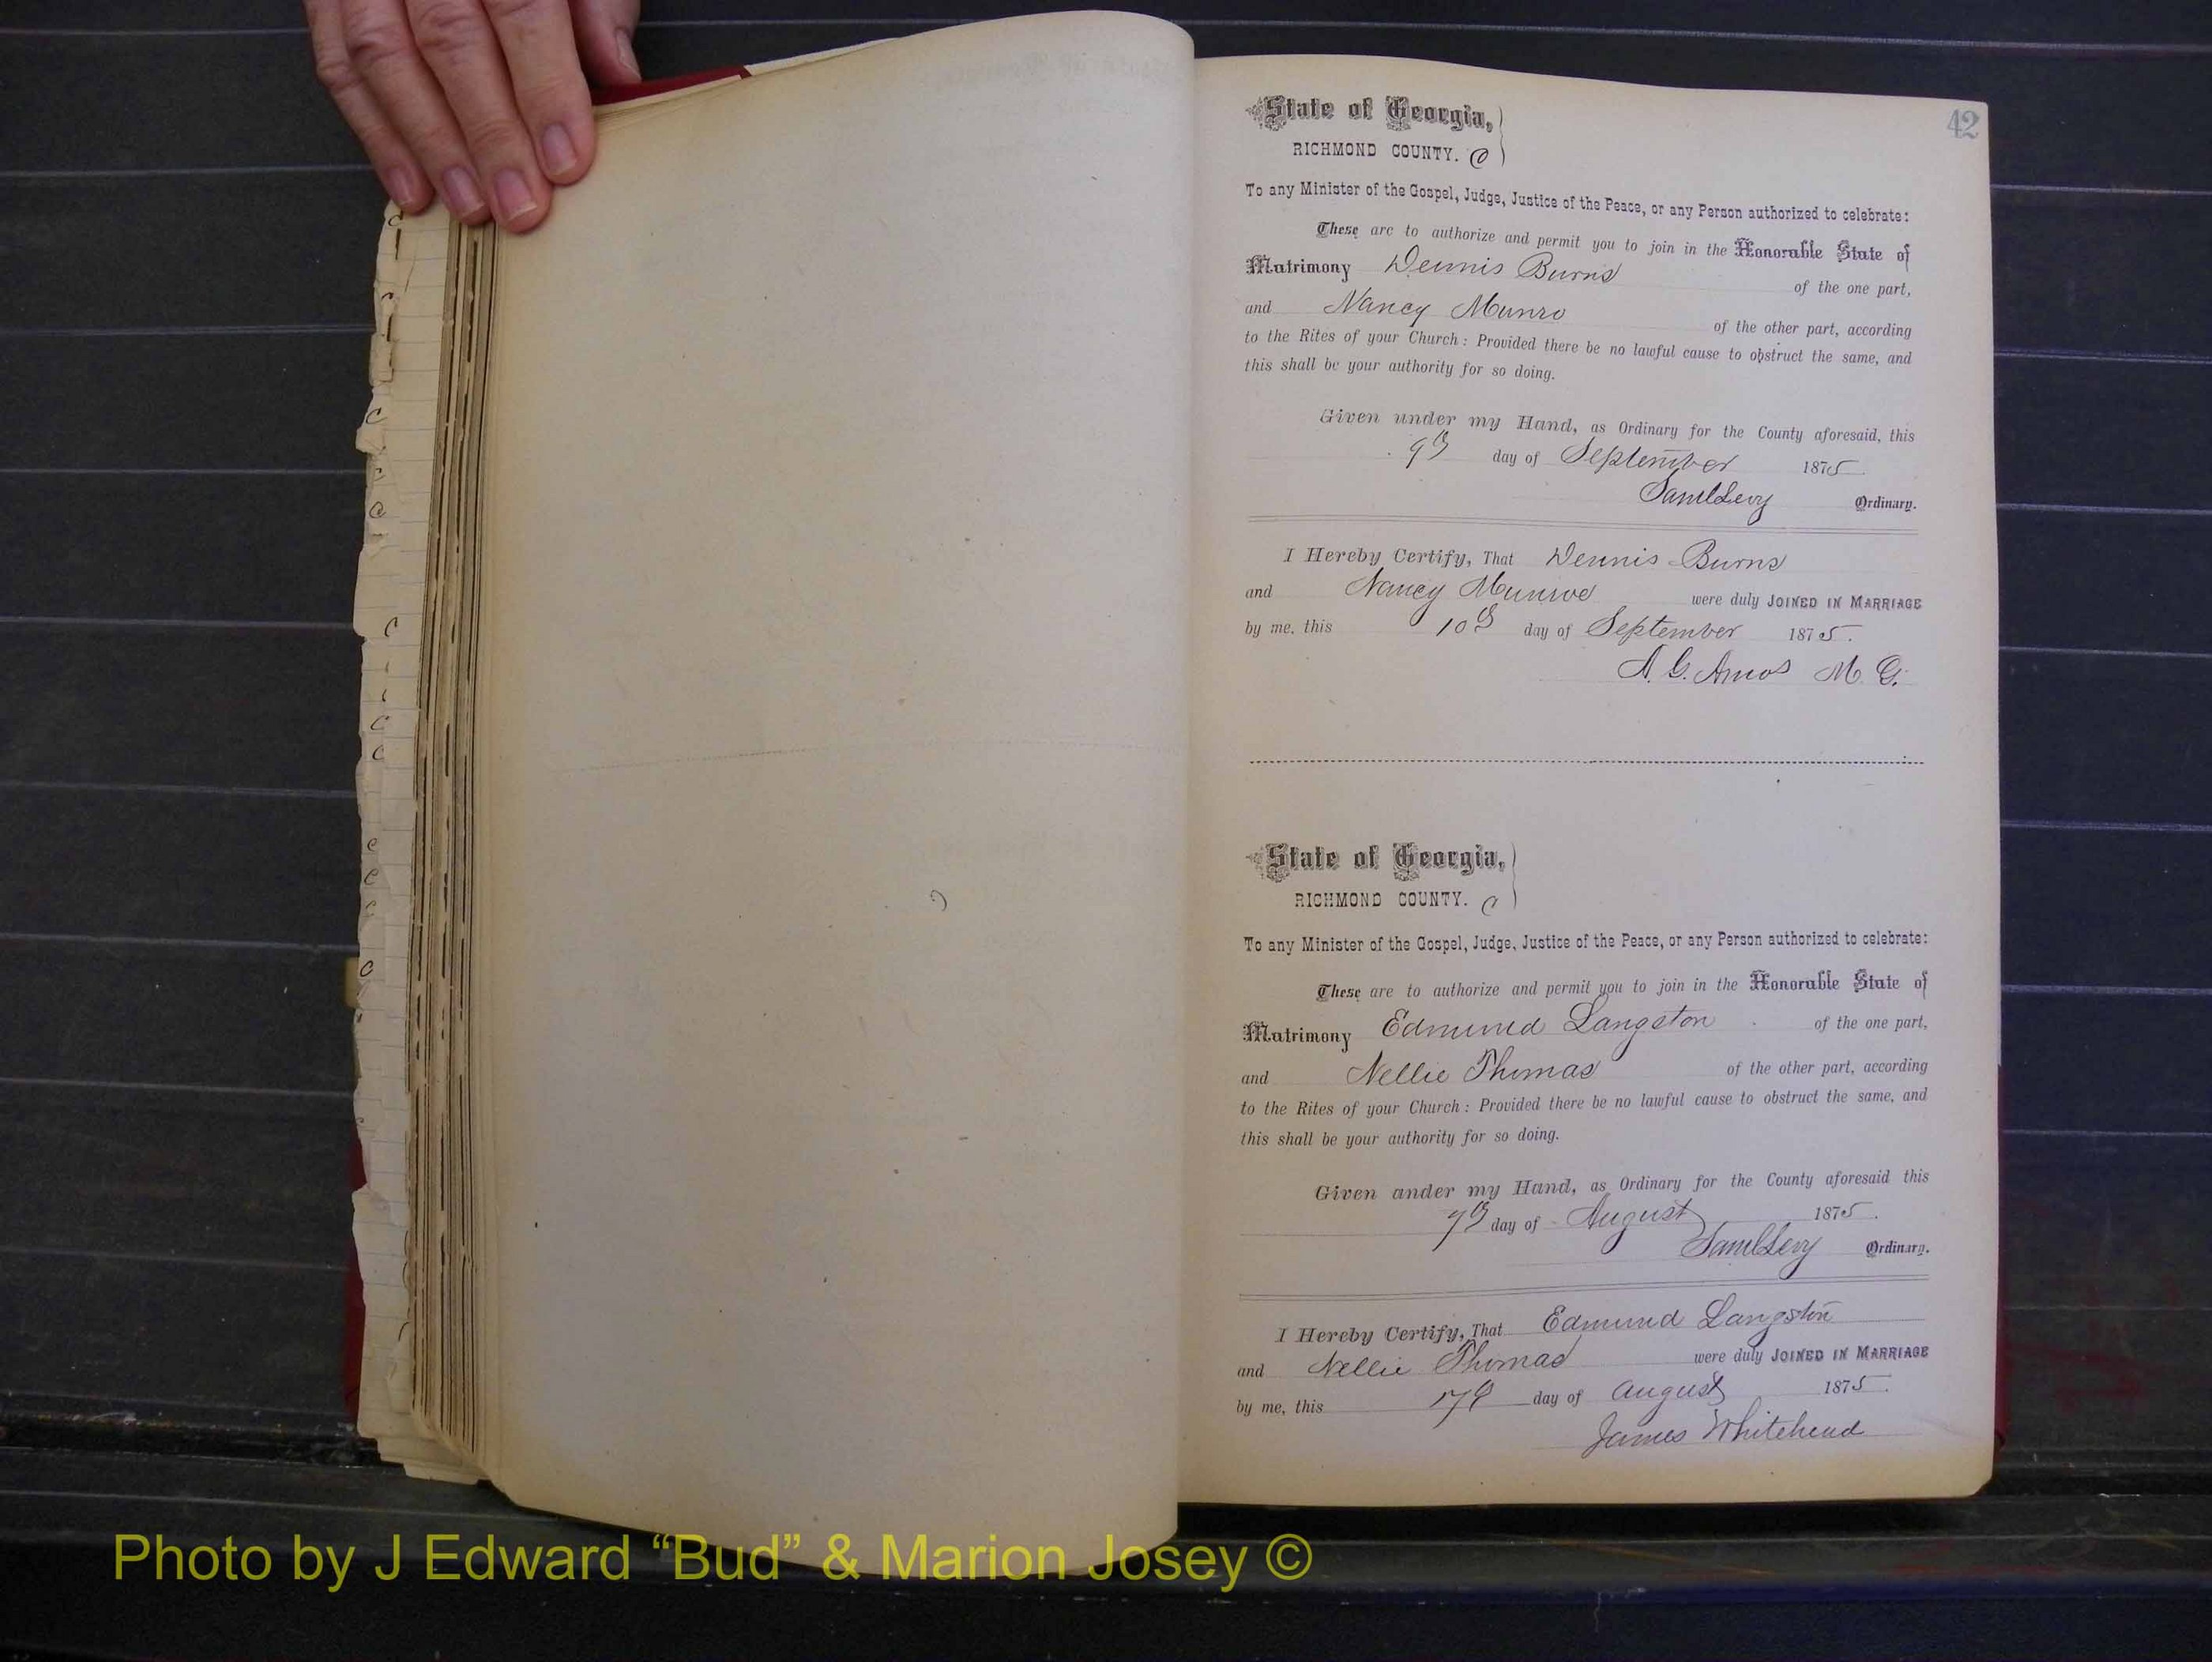 42
State of Georgia,
RICHMOND COUNTY. C
To any Minister of the Gospel, Judge, Justice of the Peace, or any Person authorized to celebrate:
These are to authorize and permit you to join in the Honorable State of
Matrimony Dennis Burns of the one part,
and Nancy Munro of the other part, according
to the Rites of your Church: Provided there be no lawful cause to obstruct the same, and
this shall be your authority for so doing.
Given under my Hand, as Ordinary for the County aforesaid, this
9th day of September 1875
Saml Levy Ordinary.
I Hereby Certify, That Dennis Burns
and Nancy Munroe were duly JOINED IN MARRIAGE
by me, this 10th day of September 1875.
A. G. Amos M. G.
State of Georgia,
RICHMOND COUNTY. C
To any Minister of the Gospel, Judge, Justice of the Peace, or any Person authorized to celebrate:
These are to authorize and permit you to join in the Honorable State of
Matrimony Edmund Langston of the one part,
and Nellie Thomas of the other part, according
to the Rites of your Church: Provided there be no lawful cause to obstruct the same, and
this shall be your authority for so doing.
Given under my Hand, as Ordinary for the County aforesaid this
7th day of August 1875.
Saml Levy Ordinary.
I Hereby Certify, That Edmund Langston
and Nellie Thomas were duly JOINED IN MARRIAGE
by me, this 17th day of August 1875.
James Whitehead
Photo by J Edward “Bud” & Marion Josey ©